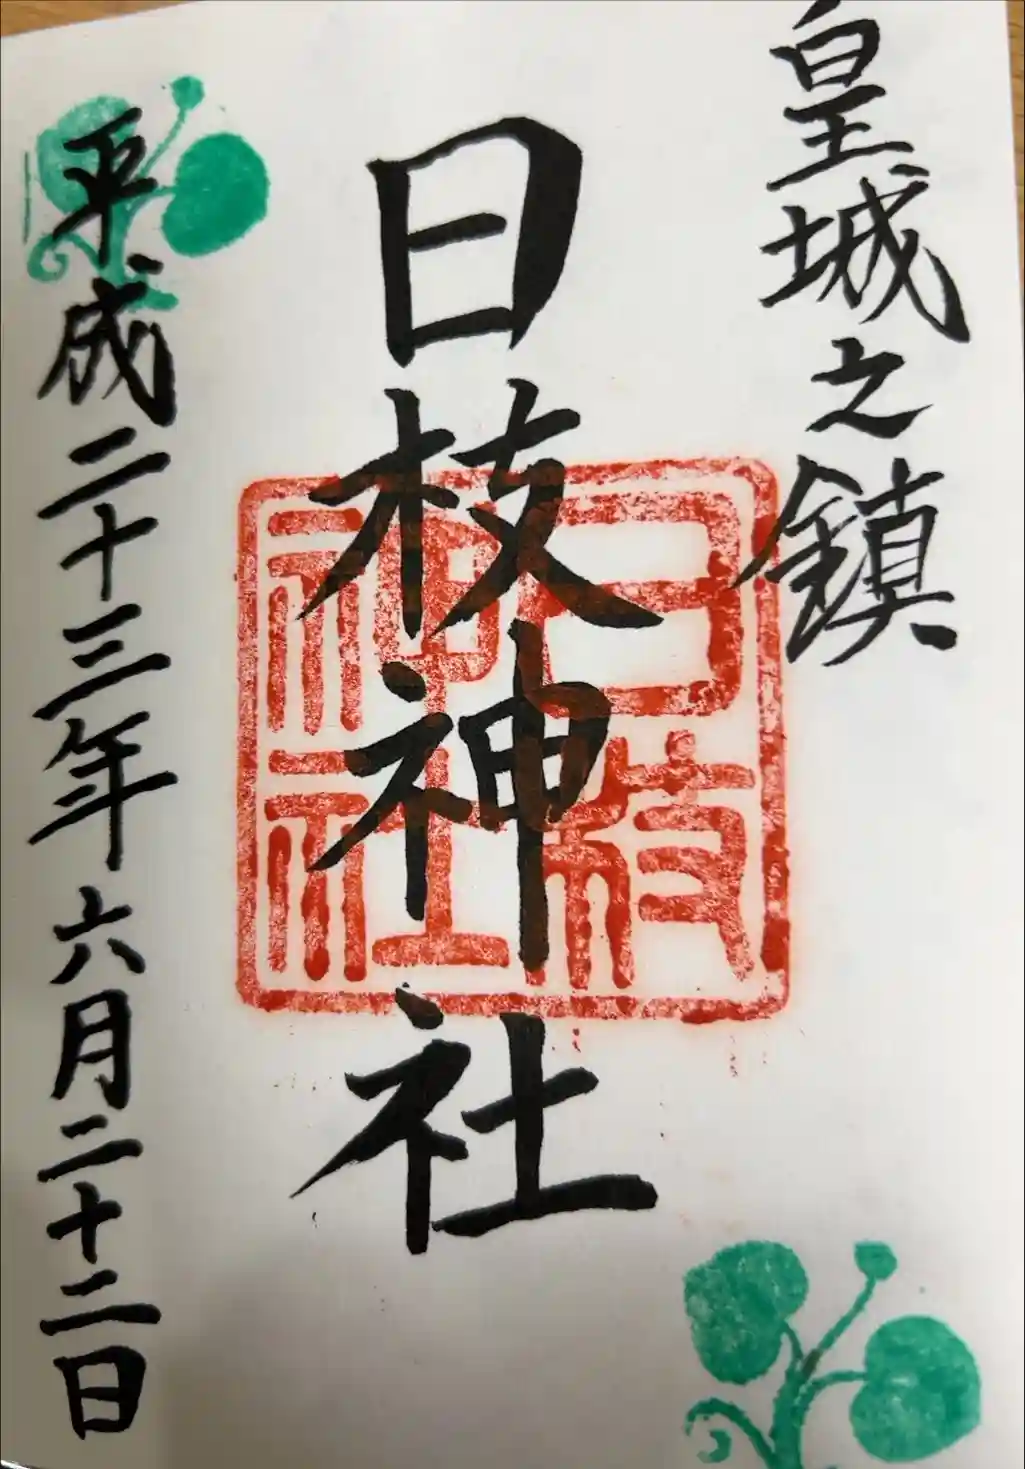 皇城之鎮
日枝神社
日枝
神社
平成二十三年六月二十二日